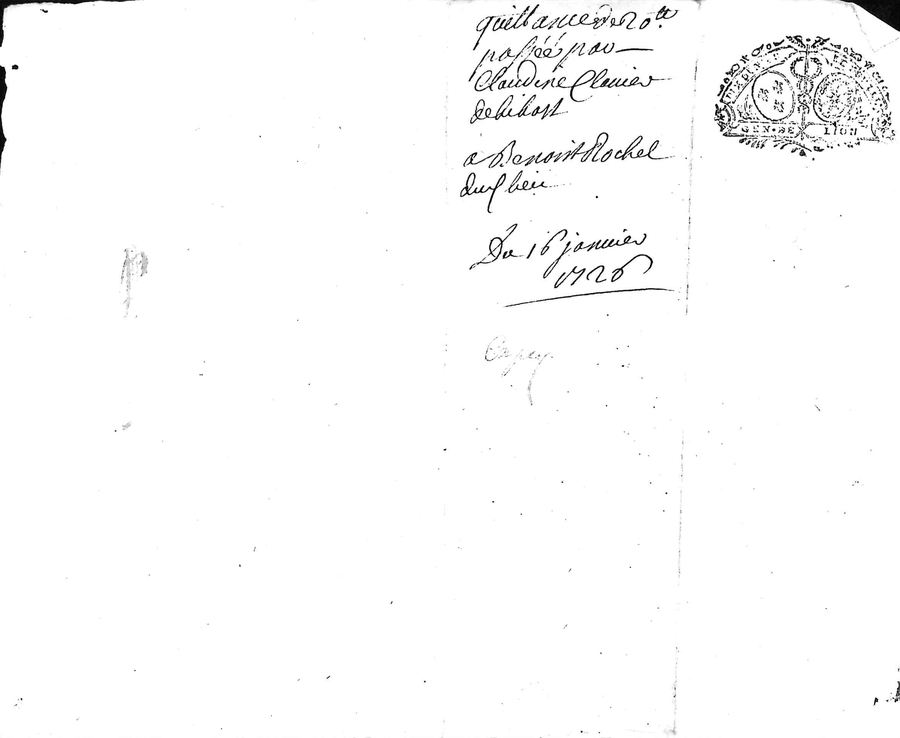 quittance de 20 ₶
passéé par
Claudine Clavier
de bibost

a Benoist Rochel
dud lieu

Du 16 janvier
1726

GEN·DE LION